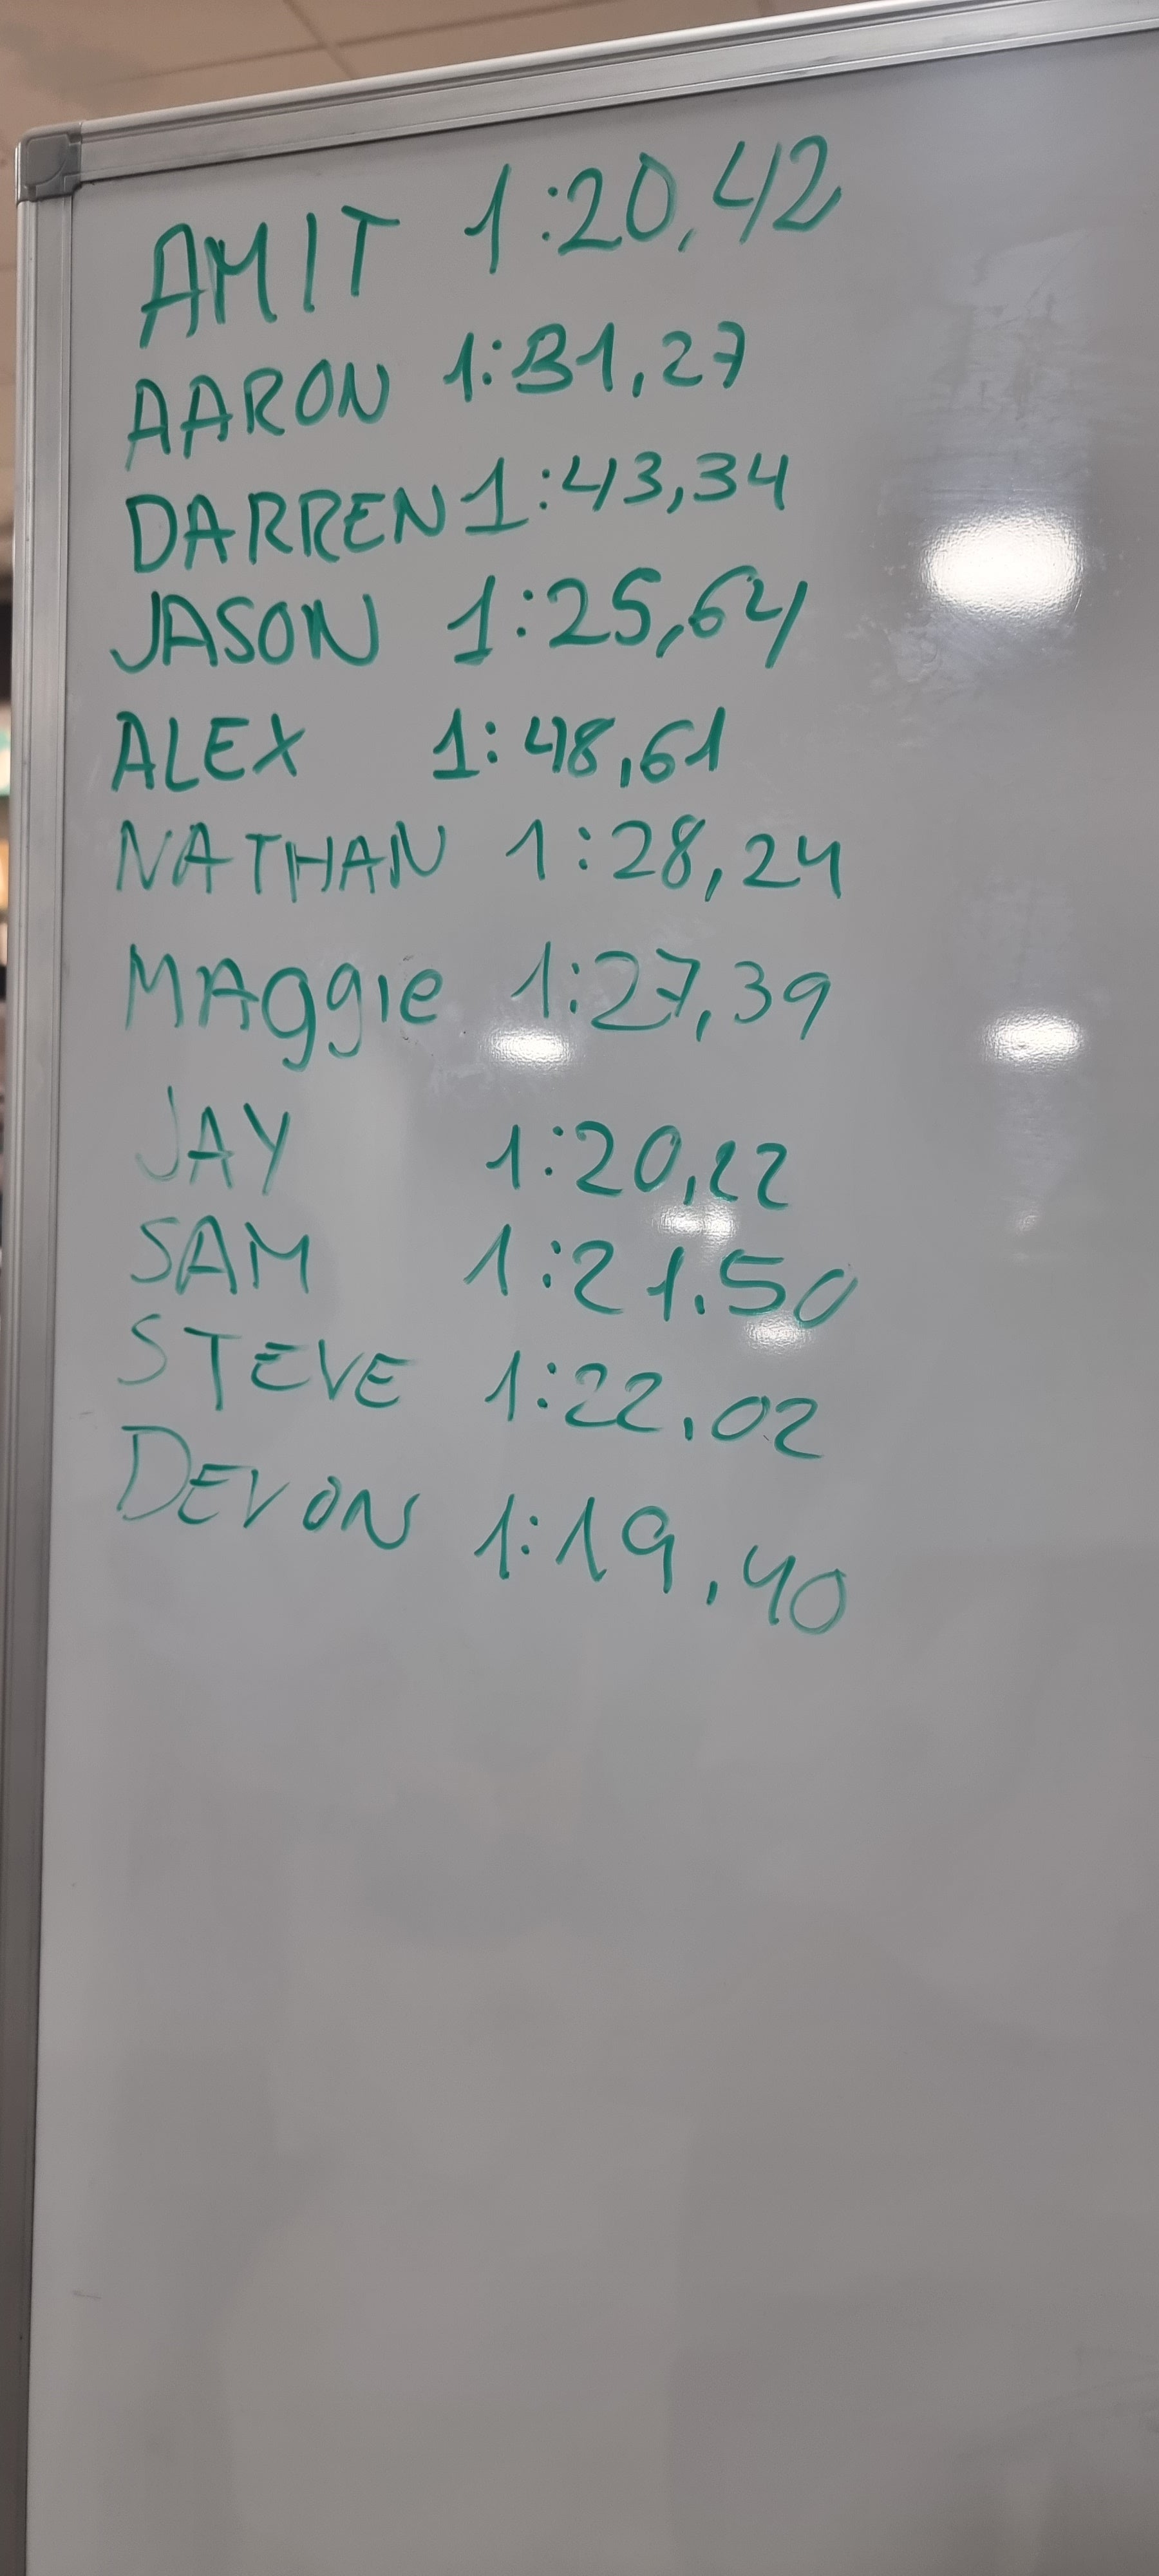 AMIT 1:20,42
AARON 1:31,27
DARREN 1:43,34
JASON 1:25,64
ALEX 1:48,61
NATHAN 1:28,24
MAggie 1:27,39
JAY 1:20,22
SAM 1:21.50
STEVE 1:22.02
DEVON 1:19,40